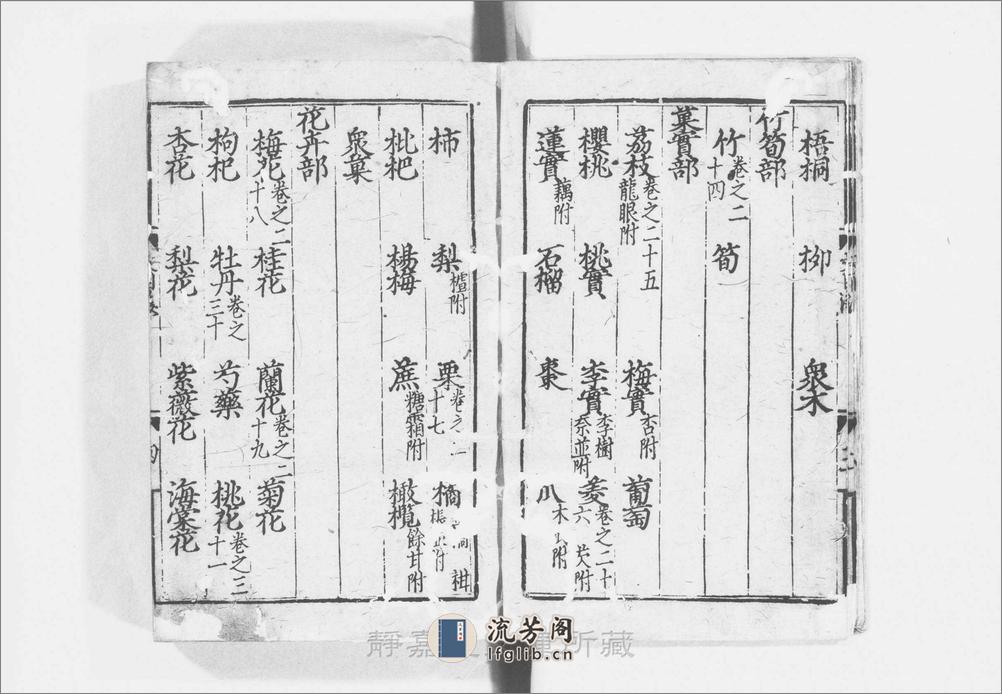 梧桐 柳 衆木
竹筍部
竹卷之二十四 筍
菓實部
荔枝卷之二十五龍眼附 梅實杏附 葡萄
櫻桃 桃實 李實李樹柰並附 菱卷之二十六芡附
蓮實藕附 石榴 棗 木附
柿 梨樝附 栗卷之十七 橘 柑
枇杷 楊梅 蔗糖霜附 橄欖餘甘附
衆菓
花卉部
梅花卷之二十八 桂花 蘭花卷之二十九 菊花
枸杞 牡丹卷之三十 芍藥 桃花卷之三十一
杏花 梨花 紫薇花 海棠花
流芳阁
lfglib.cn
靜嘉 所藏